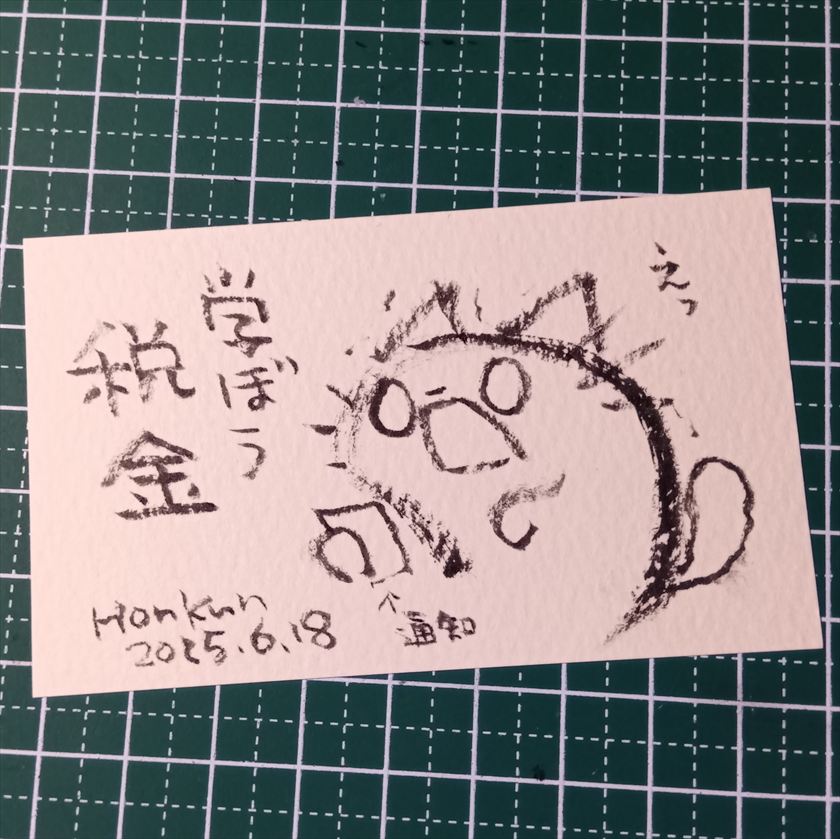 学ぼう
税金
えっ
↑
通知
Honkun
2025.6.18